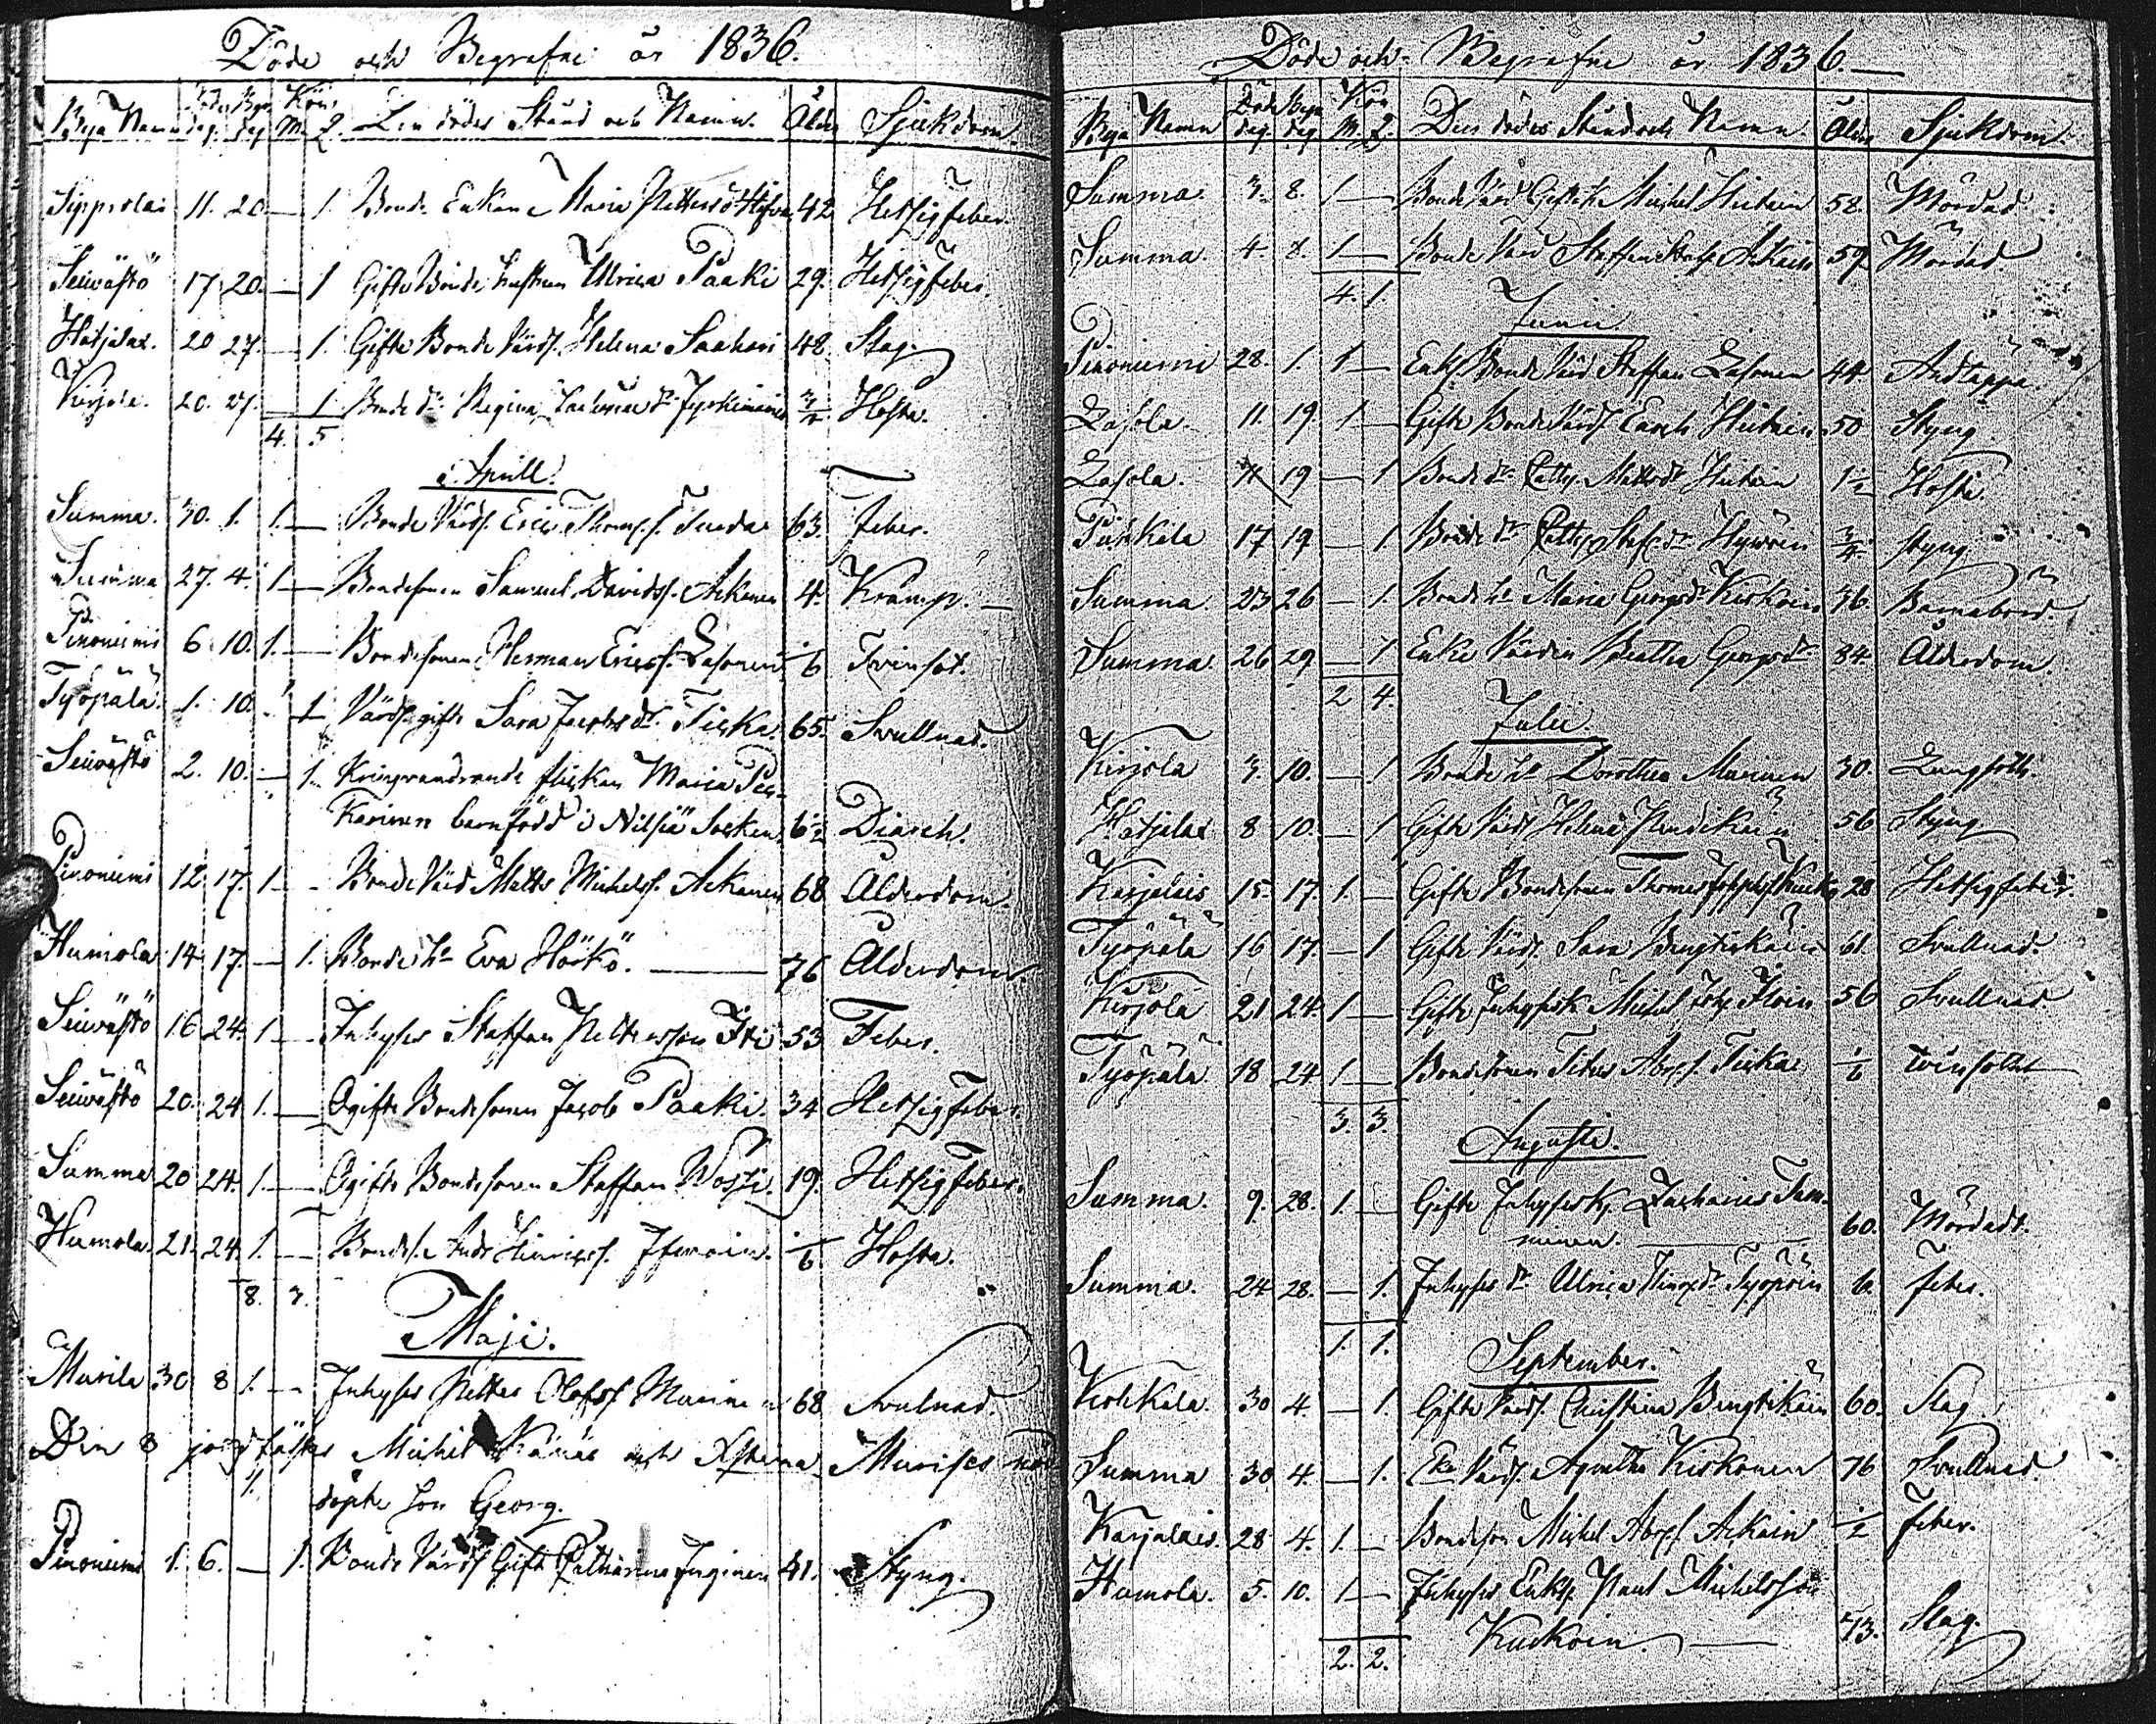 Döde och Begrafne år 1836.
Bya Namn Döde dag. Begr dag Kön. M. Q. Den dödes Stånd och Namn. Ålder Sjukdom.
Sippola 11. 20. — 1. Bonde Enkan Maria 42 Hetsigfeber.
Seivästö 17 20. — 1 Gifte Bonde hustrun Ulrica Paaki 29. Hetsigfeber.
Hatjalax. 20 27. — 1. Gifte Bonde Värds. Helena 48. Slag.
Kirjola. 20. 27. — 1. Bonde dr. Regina Hosta.
4. 5
Aprill.
Summa. 30. 1. 1. — Bonde Värds. Eric Thoms. s. 63. Feber.
Summa 27. 4. 1 — Bondesonen Samuel Davidss. Ackanen 4. Kramp. —
Pinoniemi 6 10. 1. — Bondesonen Herman Ericss. Lasonen 6 Tvinsot.
Työpälä. 1. 10. 1 Värds. gifte Sara Jacobs dr. Tiska. 65. Svullnad.
Seivästö 2. 10. — 1. Kringvandrande flickan Maria Pes-
karinen barnfödd i Nilsiä Socken 6½ Diarrh.
Pinoniemi 12. 17. 1 - Bonde Värd Matts Michelss. Ackanen 68 Ålderdom.
Humola 14 17. — 1. Bonde h. Eva Hörkö. — 76 Ålderdom.
Seivästö 16 24. 1 — Inhyses Staffan Pettersson 53 Feber.
Seivästö 20. 24 1. — Ogifte Bondesonen Jacob Paaki. 34 Hetsigfeber
Summa 20 24. 1. — Ogifte Bondesonen Staffan 19. Hetsigfeber.
Humola. 21. 24. 1. — Bondes. And. Hinricss. 1/6 Hosta.
8. 3.
Maji.
Murila 30 8 1. — Inhyses Petter Olofss. Murinen 68 Svulnad.
Den 8 jordfästes Michel och Murises
1. döpte son Georg.
Pinoniemi 1. 6. — 1. Bonde Värds Gift Catharina Inginen 41. Styng.
Döde och Begrafne år 1836. —
Bya Namn Döde dag. Begr dag Kön M. Q. Den dödes Stånd och Namn. Ålder Sjukdom.
Summa. 3. 8. 1 — Bonde Värd Gifte Michel Hutain 58. Mördad.
Summa. 4. 8. 1 — Bonde Värd Staffan Ackain 59 Mördad.
4. 1.
Junii.
Pinoniemi 28. 1. 1 — Enkl. Bonde Värd Staffan Lasonen 44. Andtäppa.
Lasola. 11. 19. 1 — Gifte Bonde Värds Hutain 50 Styng
Lasola. 11 19 — 1 Bonde dr. Cathr. Matts dr Hutain 1½ Hosta
Pihkala 17 19 — 1. Bonde dr Cathr. Staf. dr 3/4 Styng
Summa. 23 26 — 1. Bonde h. Maria Georgsdr Kiskoin 36 Barnabörd.
Summa 26 29 — 1 Enke Värden Beatha Georgsdr 84 Ålderdom
2 4.
Julii.
Kirjola 3 10. — 1 Bonde h. Dorothea Murinen 30. Lungsot.
Hatjalax 8 10. — 1 Gifte Värds Helena 56 Styng
Karjalais 15. 17. 1. — Gifte Bondesonen Thomas 28 Hetsigfeber.
Työpälä 16 17. — 1 Gifte Värds. Sara Bengtikäin 61. Svullnad.
Kirjola 21 24 1 — Gifte Inhyses k. Michel 56 Svullnad
Työpälä. 18 24 1 — Bondesonen Titus Abrs. s. Tiska 1/6 Tvinsoten
3. 3.
Augusti.
Summa. 9. 28. 1. Gifte Inhyses k. Zacharias Tam-
minen. — 60. Mördadt.
Summa. 24 28. — 1. Inhyses dr Ulrica 6. Feber.
1. 1.
September.
Kirkkala 30 4. — 1. Gifte Värds. Christina Bengtikäin 60. Slag
Summa 30 4. — 1. Eke Värds. Agnetha Kiskonen 76 Svullnad.
Karjalais 28 4. 1. — Bondeson Michel Abrs. Ackain ½ Feber.
Humola. 5. 10. 1 — Inhyses Enkl. Paul Michelsson
Kuckoin. — 73. Slag.
2. 2.